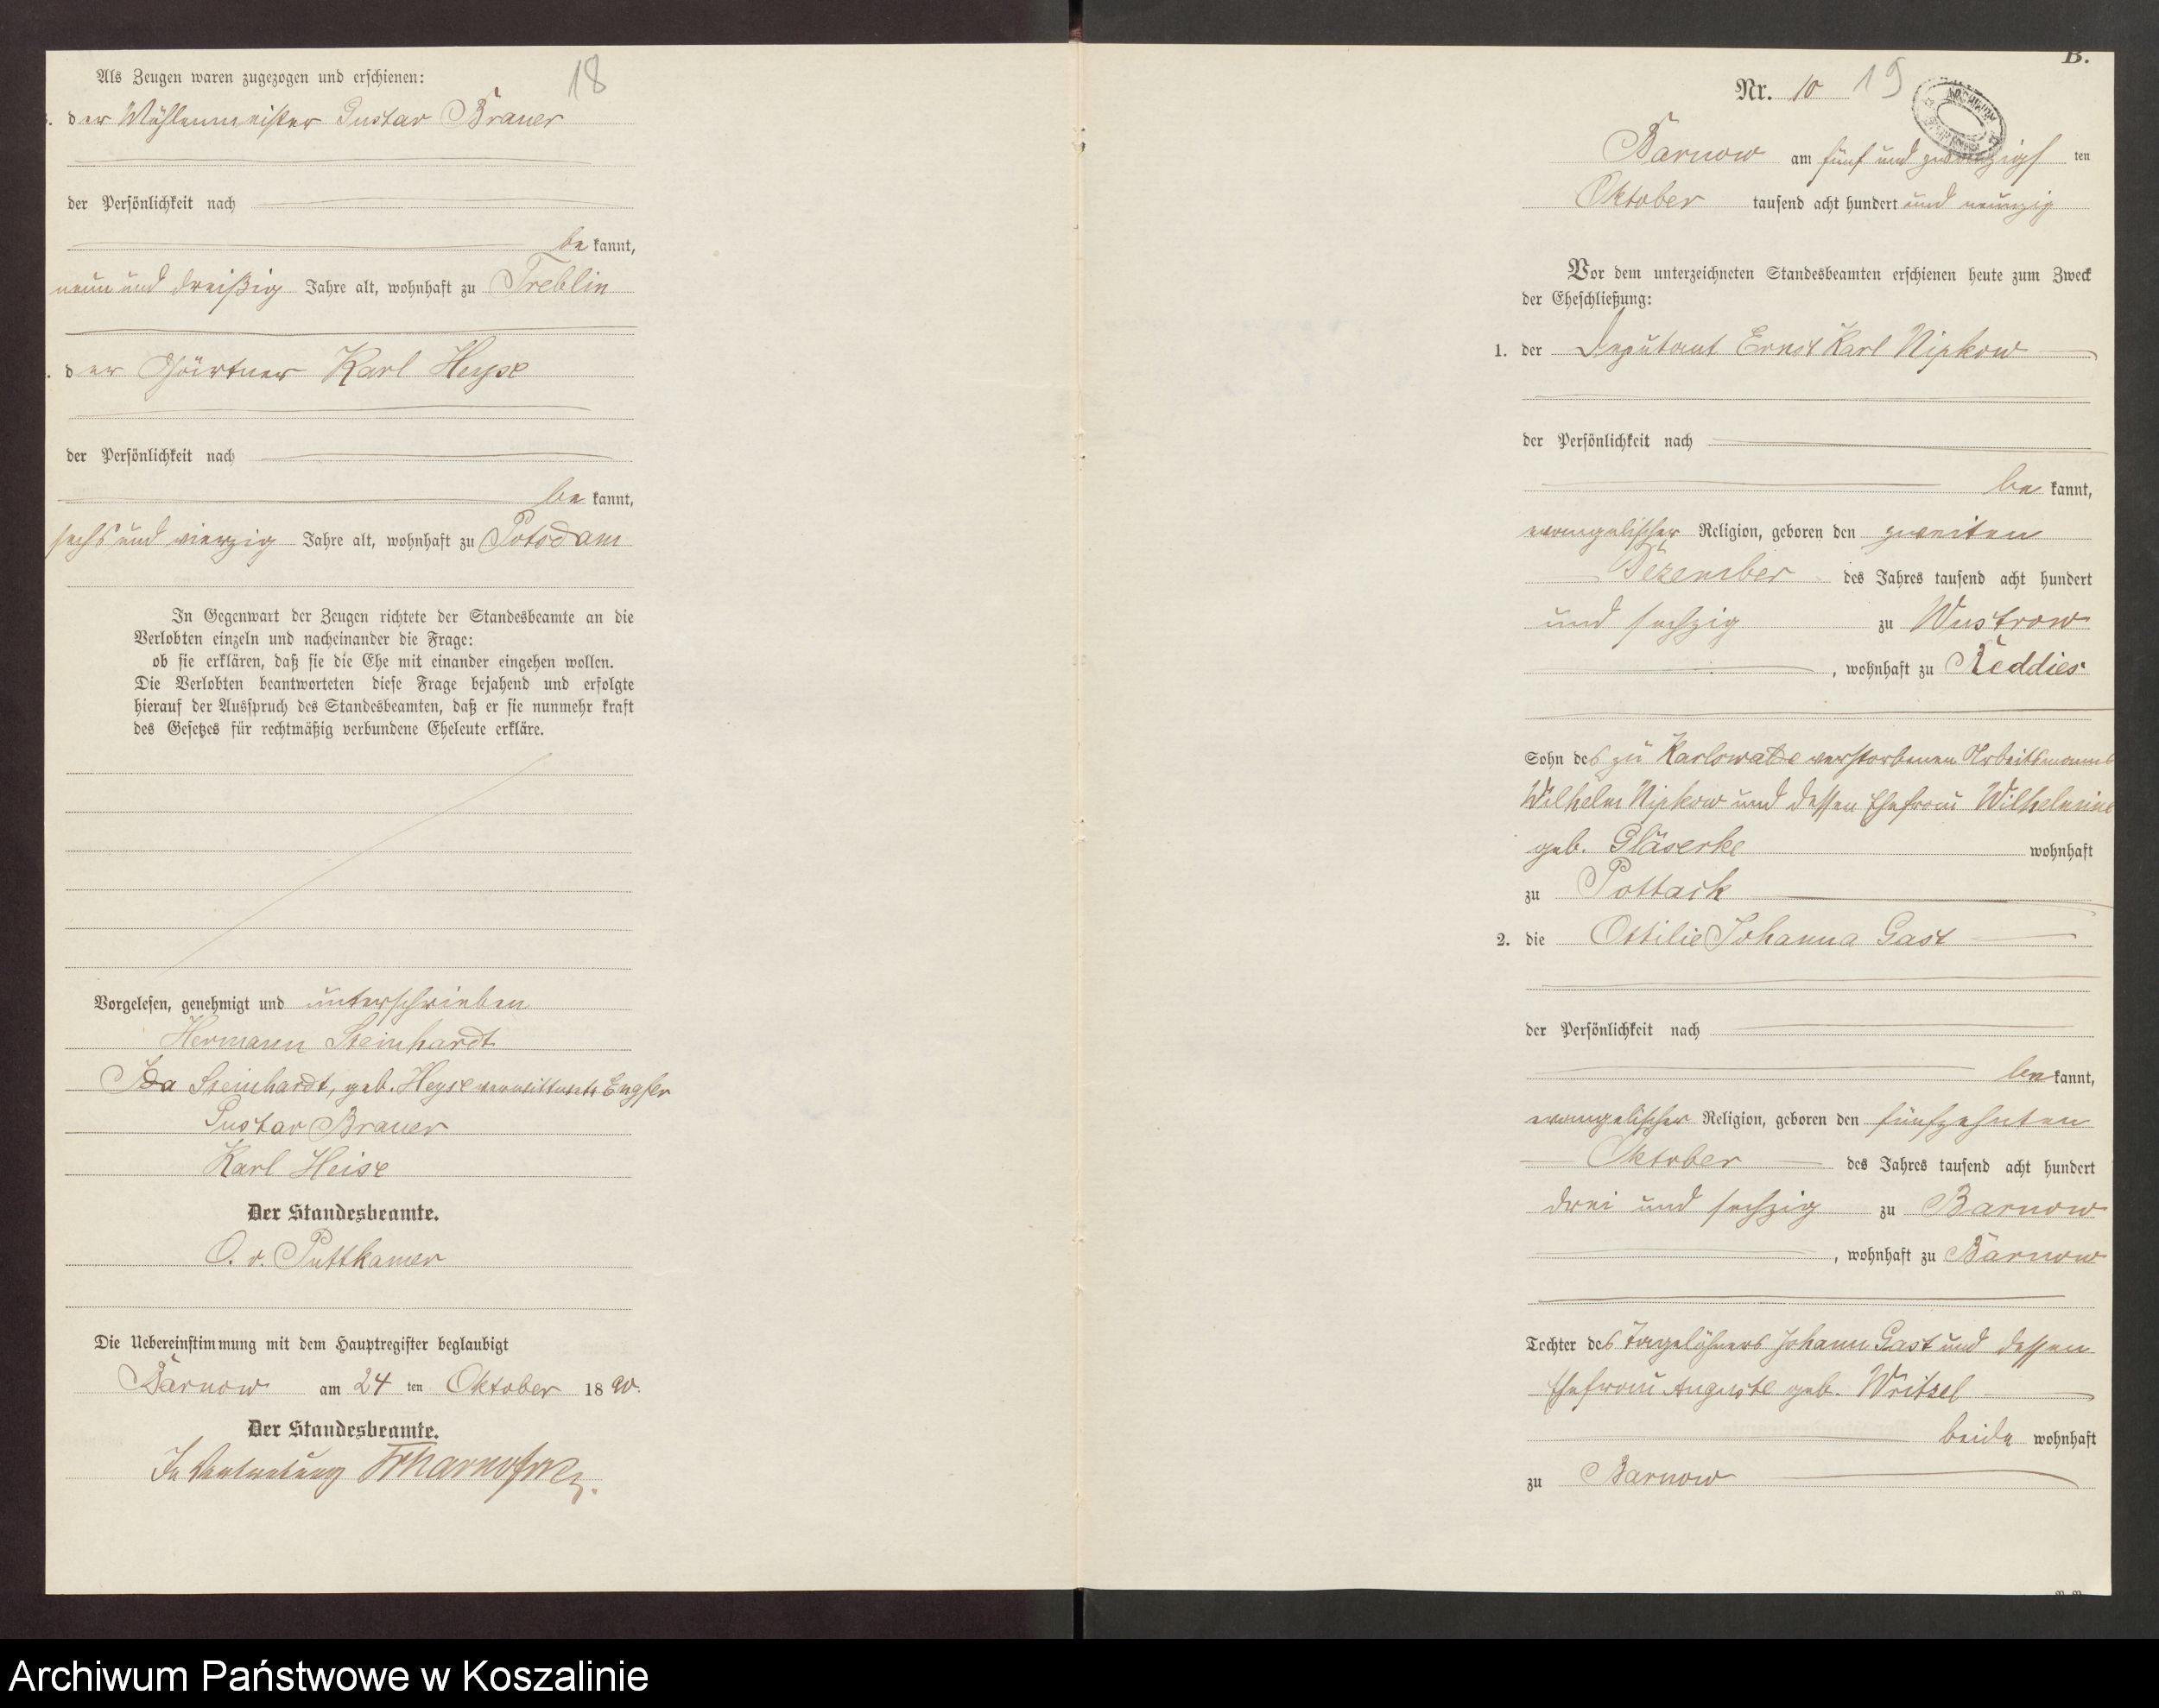 18
Als Zeugen waren zugezogen und erschienen:
der Mühlenmeister Gustav Brauer
der Persönlichkeit nach
be kannt,
neun und dreißig Jahre alt, wohnhaft zu Treblin
der Gärtner Karl Heyse
der Persönlichkeit nach
be kannt,
sechs und vierzig Jahre alt, wohnhaft zu Potsdam
In Gegenwart der Zeugen richtete der Standesbeamte an die
Verlobten einzeln und nacheinander die Frage:
ob sie erklären, daß sie die Ehe mit einander eingehen wollen.
Die Verlobten beantworteten diese Frage bejahend und erfolgte
hierauf der Ausspruch des Standesbeamten, daß er sie nunmehr kraft
des Gesetzes für rechtmäßig verbundene Eheleute erkläre.
Vorgelesen, genehmigt und unterschrieben
Hermann Steinhardt
Ida Steinhardt, geb. Heyse verwittwete Engler
Gustav Brauer
Karl Heise
Der Standesbeamte.
O. v. Puttkamer
Die Uebereinstimmung mit dem Hauptregister beglaubigt
Barnow am 24 ten Oktober 1890.
Der Standesbeamte.
In Vertretung
B.
Nr. 10 19
Barnow am fünf und zwanzigs ten
Oktober tausend acht hundert und neunzig
Vor dem unterzeichneten Standesbeamten erschienen heute zum Zweck
der Eheschließung:
1. der Deputant Ernst Karl Nipkow
der Persönlichkeit nach
be kannt,
evangelischer Religion, geboren den zweiten
Dezember des Jahres tausend acht hundert
und sechzig zu Wustrow
, wohnhaft zu Reddies
Sohn des zu Karlswalde verstorbenen Arbeitsmanns
Wilhelm Nipkow und dessen Ehefrau Wilhelmine
geb. Gläserke wohnhaft
zu Pottack
2. die Ottilie Johanna Gast
der Persönlichkeit nach
be kannt,
evangelischer Religion, geboren den fünfzehnten
Oktober des Jahres tausend acht hundert
drei und sechzig zu Barnow
, wohnhaft zu Barnow
Tochter des Tagelöhners Johann Gast und dessen
Ehefrau Auguste geb. Writzel
beide wohnhaft
zu Barnow
Archiwum Państwowe w Koszalinie